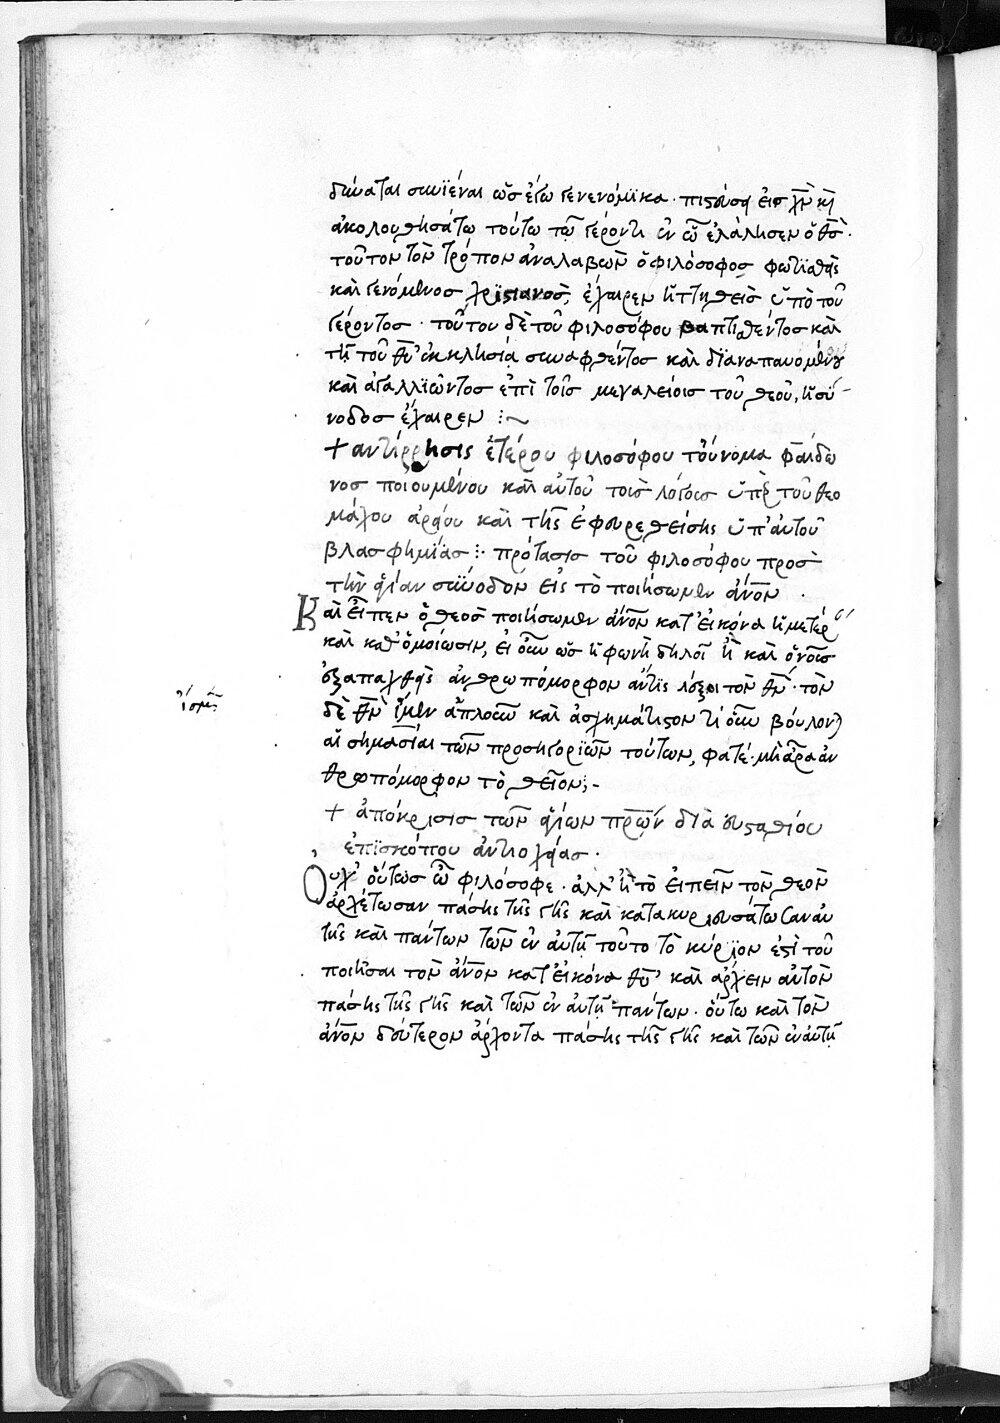 δύναται συνϊέναι ὡς ἐγὼ γενενόμϊκα· πιστεύσῃ εἰς χν̅ κὶ
ἀκολουθησάτω τούτω τῶ γέροντι ἐν ᾧ ἐλάλησεν ὁ θς̅·
τοῦτον τὸν τρόπον ἀναλαβὼν ὁ φιλόσοφος φωτισθεὶς
καὶ γενόμενος χριστιανὸς, ἔχαιρεν ἡττηθεὶς ὑπὸ τοῦ
γέροντος· τούτου δὲ τοῦ φιλοσόφου βαπτισθέντος καὶ
τῇ τοῦ θυ̅ ἐκκλησία συναφθέντος καὶ δϊαναπαυομένου
καὶ ἀγαλλϊῶντος ἐπὶ τοῖς μεγαλείοις τοῦ θεοῦ, ἡ σύ-
νοδος ἔχαιρεν :~
+ αντίρρησις ἑτέρου φιλοσόφου τοὔνομα φαίδω
νος ποιουμένου καὶ αὐτοῦ τοὺς λόγους ὑπὲρ τοῦ θεο
μάχου ἀρείου καὶ τῆς ἐφευρεθείσης ὑπ' αὐτοῦ
βλασφημίας :· πρότασις τοῦ φιλοσόφου προς
τὴν ἁγίαν σύνοδον εἰς τὸ ποιήσωμεν ἄνον̅ ·
Καὶ εἶπεν ὁ θεὸς ποιήσωμεν ἄνον̅ κατ' εἰκόνα ἡμετέρ
καὶ καθ' ὁμοίωσιν, εἰ οὖν ὡς ἡ φωνὴ δηλοῖ
ἀνθρωπόμορφον τὸν θν̅· τὸν
δὲ θν̅ ἴσμεν ἁπλοῦν καὶ ἀσχημάτιστον τί οὖν βούλονται
αἱ σημασίαι τῶν προσηγορϊῶν τούτων, φατέ· μὴ ἄρα ἀν
θρωπόμορφον τὸ θεῖον;-
+ ἀπόκρισις τῶν ἁγίων πρῶν διὰ εὐσταθίου
ἐπϊσκόπου ἀντιοχείας·
Οὐχ' οὕτως ὦ φιλόσοφε· ἀλλ' ἢ τὸ εἰπεῖν τὸν θεὸν
ἀρχέτωσαν πάσης τῆς γῆς καὶ κατακυριευσάτωσαν αὐ
τῆς καὶ πάντων τῶν ἐν αὐτῇ τοῦτο τὸ κύρϊον ἐστὶ τοῦ
ποιῆσαι τὸν ἄνον̅ κατ' εἰκόνα θυ̅ καὶ ἄρχειν αὐτὸν
πάσης τῆς γῆς καὶ τῶν ἐν αὐτῇ πάντων· οὕτω καὶ τὸν
ἄνον̅ δεύτερον ἄρχοντα πάσης τῆς γῆς καὶ τῶν ἐν αὐτῇ